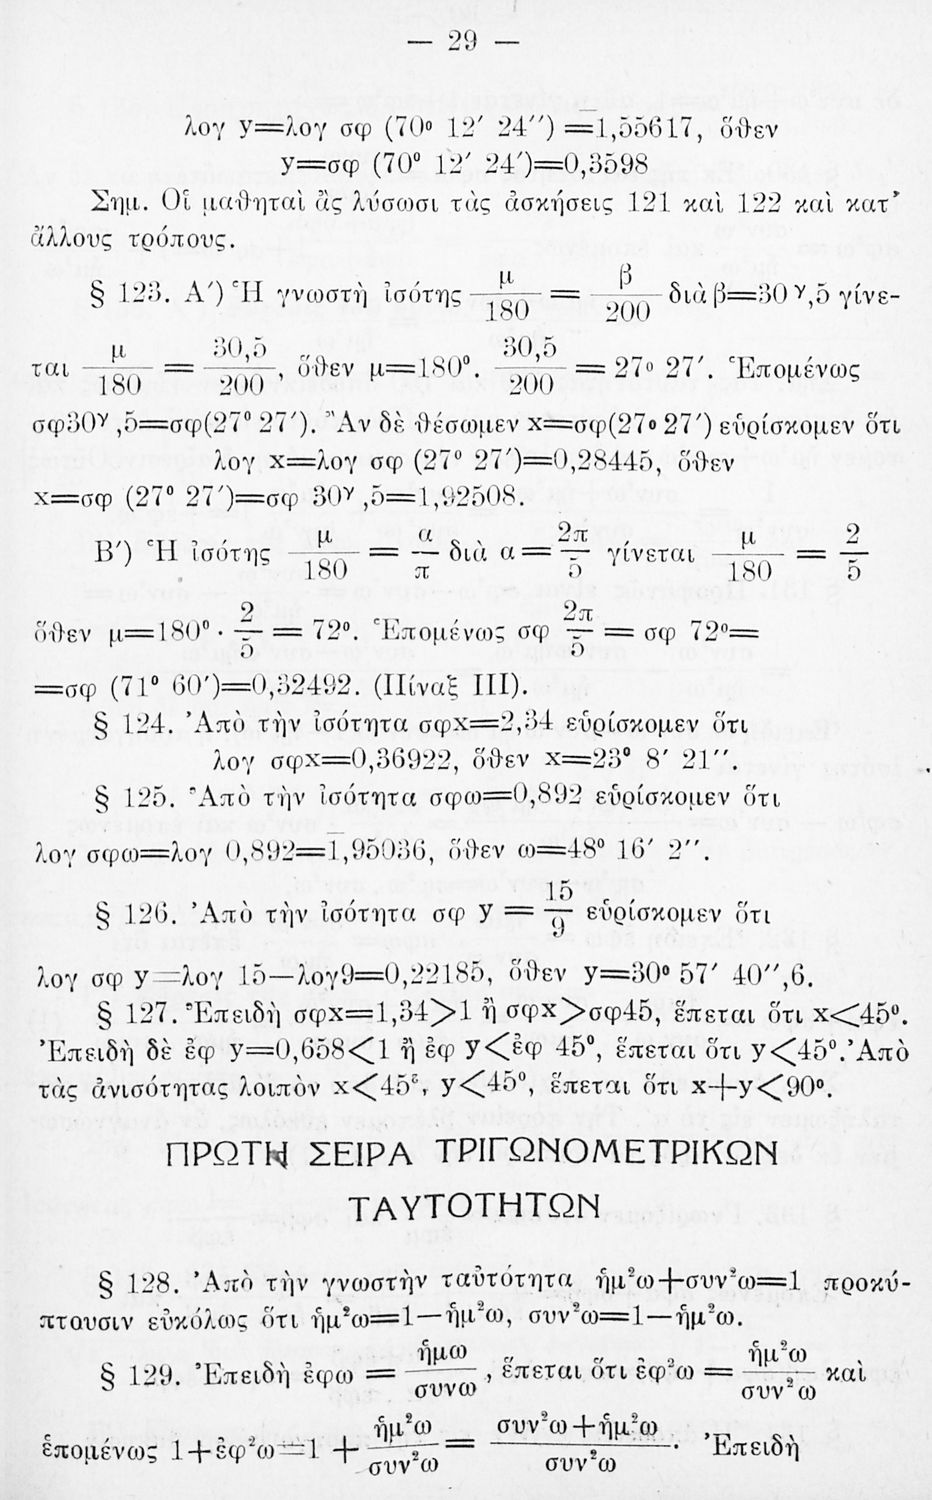 — 29 —
λογ y=λογ σφ (70⁰ 12′ 24″) =1̅,55617, ὅθεν
y=σφ (70⁰ 12′ 24′)=0,3598
Σημ. Οἱ μαθηταὶ ἂς λύσωσι τὰς ἀσκήσεις 121 καὶ 122 καὶ κατ᾿
ἄλλους τρόπους.
§ 123. Α′) Ἡ γνωστὴ ἰσότης μ/180 = β/200 διὰ β=30ᵞ,5 γίνε-
ται μ/180 = 30,5/200, ὅθεν μ=180⁰. 30,5/200 = 27⁰ 27′. Ἑπομένως
σφ30ᵞ,5=σφ(27⁰ 27′). Ἂν δὲ θέσωμεν x=σφ(27⁰ 27′) εὑρίσκομεν ὅτι
λογ x=λογ σφ (27⁰ 27′)=0,28445, ὅθεν
x=σφ (27⁰ 27′)=σφ 30ᵞ,5=1,92508.
Β′) Ἡ ἰσότης μ/180 = α/π διὰ α = 2π/5 γίνεται μ/180 = 2/5
ὅθεν μ=180⁰ · 2/5 = 72⁰. Ἑπομένως σφ 2π/5 = σφ 72⁰=
=σφ (71⁰ 60′)=0,32492. (Πίναξ ΙΙΙ).
§ 124. Ἀπὸ τὴν ἰσότητα σφx=2,34 εὑρίσκομεν ὅτι
λογ σφx=0,36922, ὅθεν x=23⁰ 8′ 21″.
§ 125. Ἀπὸ τὴν ἰσότητα σφω=0,892 εὑρίσκομεν ὅτι
λογ σφω=λογ 0,892=1̅,95036, ὅθεν ω=48⁰ 16′ 2″.
§ 126. Ἀπὸ τὴν ἰσότητα σφ y = 15/9 εὑρίσκομεν ὅτι
λογ σφ y=λογ 15—λογ9=0,22185, ὅθεν y=30⁰ 57′ 40″,6.
§ 127. Ἐπειδὴ σφx=1,34>1 ἢ σφx>σφ45, ἕπεται ὅτι x<45⁰.
Ἐπειδὴ δὲ ἐφ y=0,658<1 ἢ ἐφ y<ἐφ 45⁰, ἕπεται ὅτι y<45⁰. Ἀπὸ
τὰς ἀνισότητας λοιπὸν x<45⁰, y<45⁰, ἕπεται ὅτι x+y<90⁰.
ΠΡΩΤΗ ΣΕΙΡΑ ΤΡΙΓΩΝΟΜΕΤΡΙΚΩΝ
ΤΑΥΤΟΤΗΤΩΝ
§ 128. Ἀπὸ τὴν γνωστὴν ταὐτότητα ἡμ²ω+συν²ω=1 προκύ-
πτουσιν εὐκόλως ὅτι ἡμ²ω=1—ἡμ²ω, συν²ω=1—ἡμ²ω.
§ 129. Ἐπειδὴ ἐφω = ἡμω/συνω, ἕπεται ὅτι ἐφ²ω = ἡμ²ω/συν²ω καὶ
ἑπομένως 1+ἐφ²ω=1 + ἡμ²ω/συν²ω = συν²ω+ἡμ²ω/συν²ω. Ἐπειδὴ